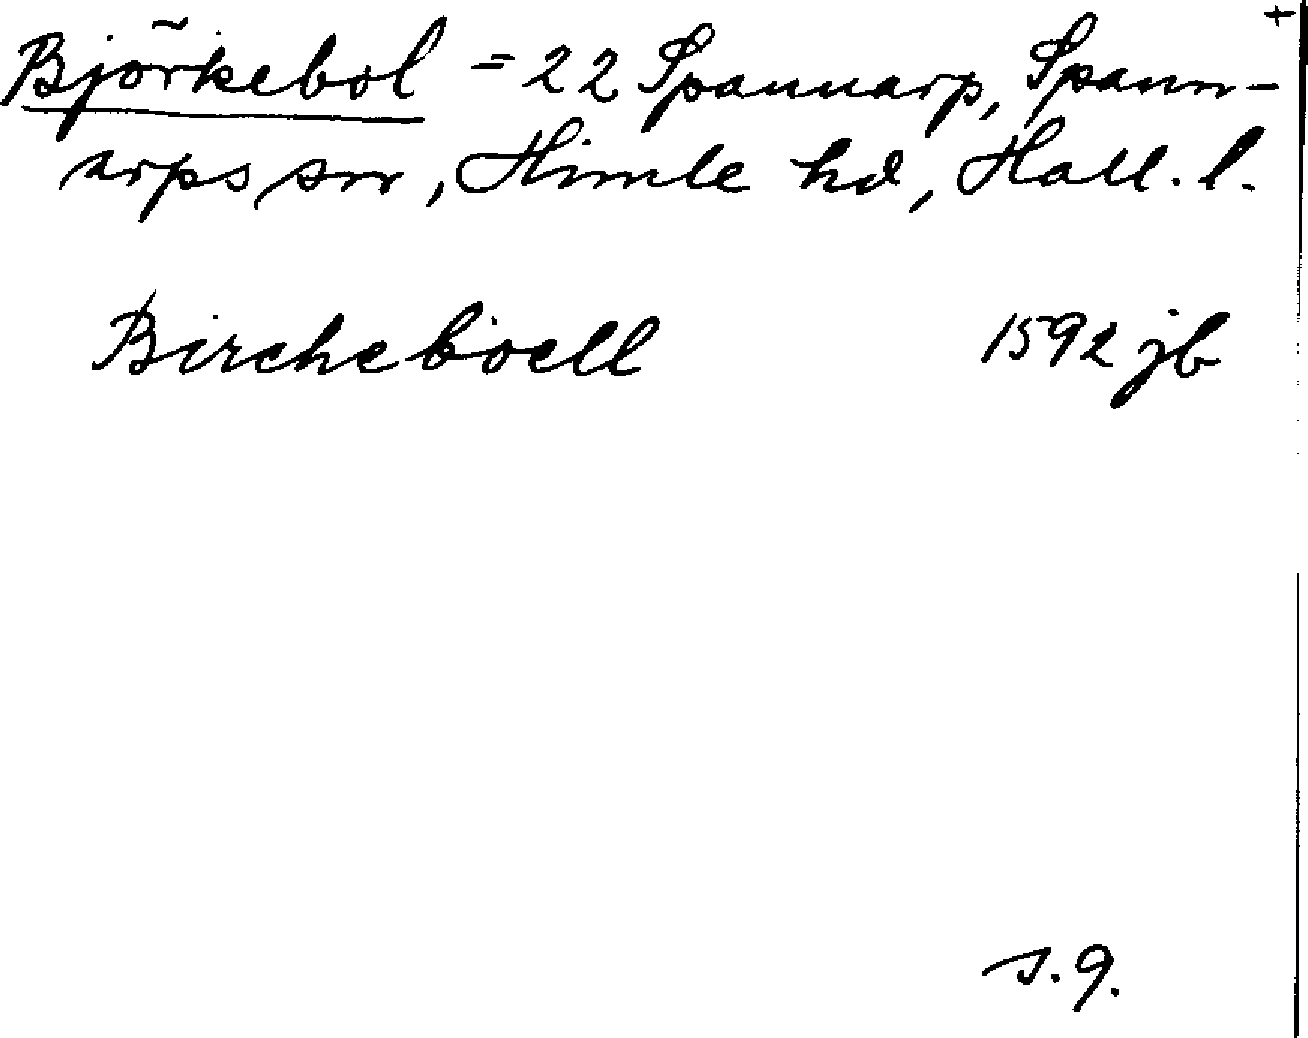 +
Björkebol = 22 Spannarp, Spann-
arps sn, Himle hd, Hall. l.
Bircheboell 1592 jb
s. 9.